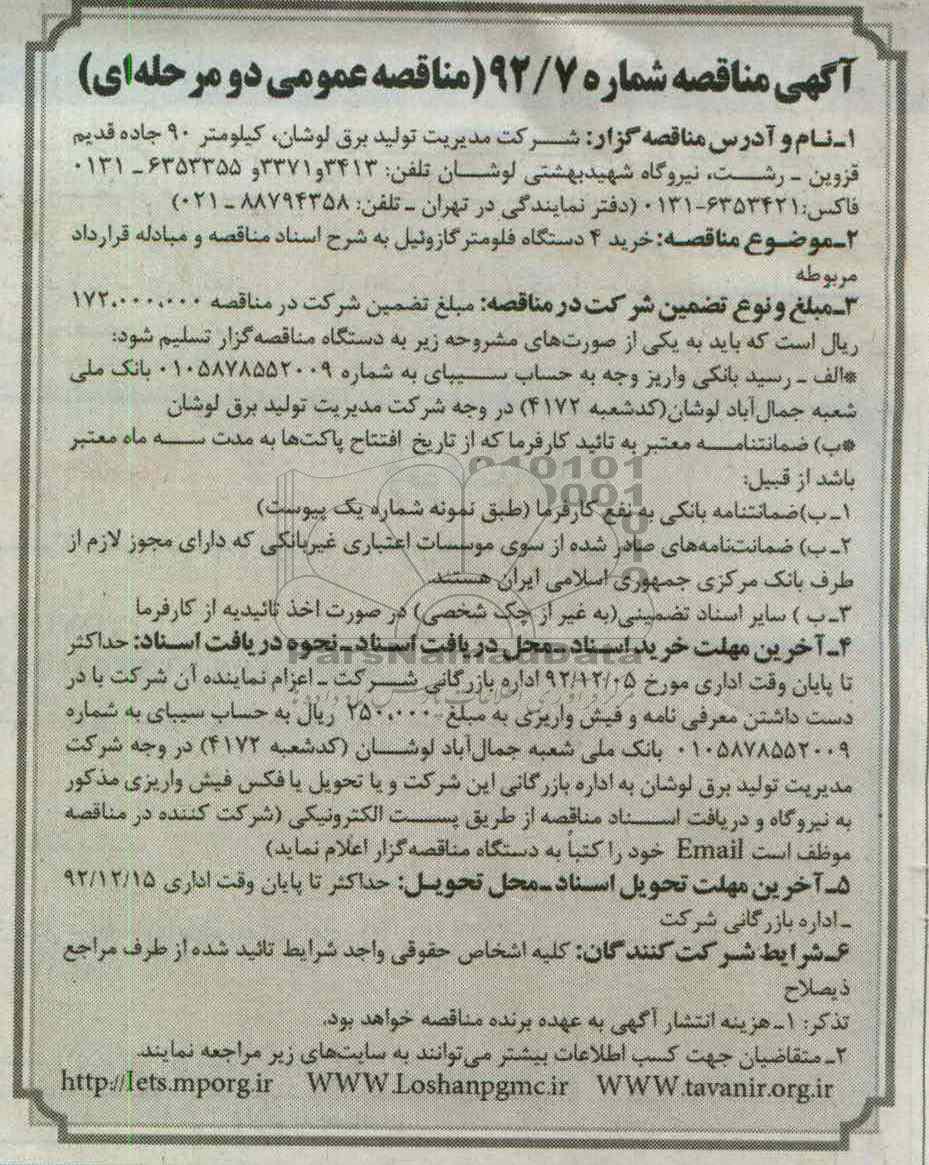 آگهی مناقصه شماره ۹۲/۷ (مناقصه عمومی دو مرحله‌ای)
۱ـ نـام و آدرس مناقصه‌گزار: شـــرکت مدیریت تولید برق لوشان، کیلومتر ۹۰ جاده قدیم
قزوین ـ رشــت، نیروگاه شهیدبهشتی لوشــان تلفن: ۳۴۱۳و۳۳۷۱و ۶۳۵۳۳۵۵ ـ ۰۱۳۱
فاکس:۶۳۵۳۴۲۱-۰۱۳۱ (دفتر نمایندگی در تهران ـ تلفن: ۸۸۷۹۴۳۵۸ ـ ۰۲۱)
۲ـموضـوع مناقصـه: خرید ۴ دستگاه فلومتر گازوئیل به شرح اسناد مناقصه و مبادله قرارداد
مربوطه
۳ـمبلغ و نوع تضمین شرکت در مناقصه: مبلغ تضمین شرکت در مناقصه ۱۷۲،۰۰۰،۰۰۰
ریال است که باید به یکی از صورت‌های مشروحه زیر به دستگاه مناقصه‌گزار تسلیم شود:
*الف ـ رسید بانکی واریز وجه به حساب ســیبای به شماره ۰۱۰۵۸۷۸۵۵۲۰۰۹ بانک ملی
شعبه جمال‌آباد لوشان(کدشعبه ۴۱۷۲) در وجه شرکت مدیریت تولید برق لوشان
*ب) ضمانتنامـــه معتبر به تائید کارفرما که از تاریخ افتتاح پاکت‌ها به مدت ســـه ماه معتبر
باشد از قبیل:
۱ـ ب)ضمانتنامه بانکی به نفع کارفرما (طبق نمونه شماره یک پیوست)
۲ـ ب) ضمانت‌نامه‌های صادر شده از سوی موسسات اعتباری غیربانکی که دارای مجوز لازم از
طرف بانک مرکزی جمهوری اسلامی ایران هستند.
۳ـ ب ) سایر اسناد تضمینی(به غیر از چک شخصی) در صورت اخذ تائیدیه از کارفرما
۴ـ آخرین مهلت خرید اسـناد ـ محل دریافت اسـناد ـ نحوه دریافت اسـناد: حداکثر
تا پایان وقت اداری مورخ ۹۲/۱۲/۰۵ اداره بازرگانی شـــرکت ـ اعزام نماینده آن شرکت با در
دست داشتن معرفی نامه و فیش واریزی به مبلغ ۲۵۰،۰۰۰ ریال به حساب سیبای به شماره
۰۱۰۵۸۷۸۵۵۲۰۰۹ بانک ملی شعبه جمال‌آباد لوشـــان (کدشعبه ۴۱۷۲) در وجه شرکت
مدیریت تولید برق لوشان به اداره بازرگانی این شرکت و یا تحویل یا فکس فیش واریزی مذکور
به نیروگاه و دریافت اســـناد مناقصه از طریق پســـت الکترونیکی (شرکت کننده در مناقصه
موظف است Email خود را کتباً به دستگاه مناقصه‌گزار اعلام نماید)
۵ـ آخرین مهلت تحویل اسـناد ـ محل تحویـل: حداکثر تا پایان وقت اداری ۹۲/۱۲/۱۵
ـ اداره بازرگانی شرکت
۶ـشرایط شـرکت‌کنندگان: کلیه اشخاص حقوقی واجد شرایط تائید شده از طرف مراجع
ذیصلاح
تذکر: ۱ـ هزینه انتشار آگهی به عهده برنده مناقصه خواهد بود.
۲ـ متقاضیان جهت کسب اطلاعات بیشتر می‌توانند به سایت‌های زیر مراجعه نمایند.
http://Iets.mporg.ir WWW.Loshanpgmc.ir WWW.tavanir.org.ir
ParsNamadData